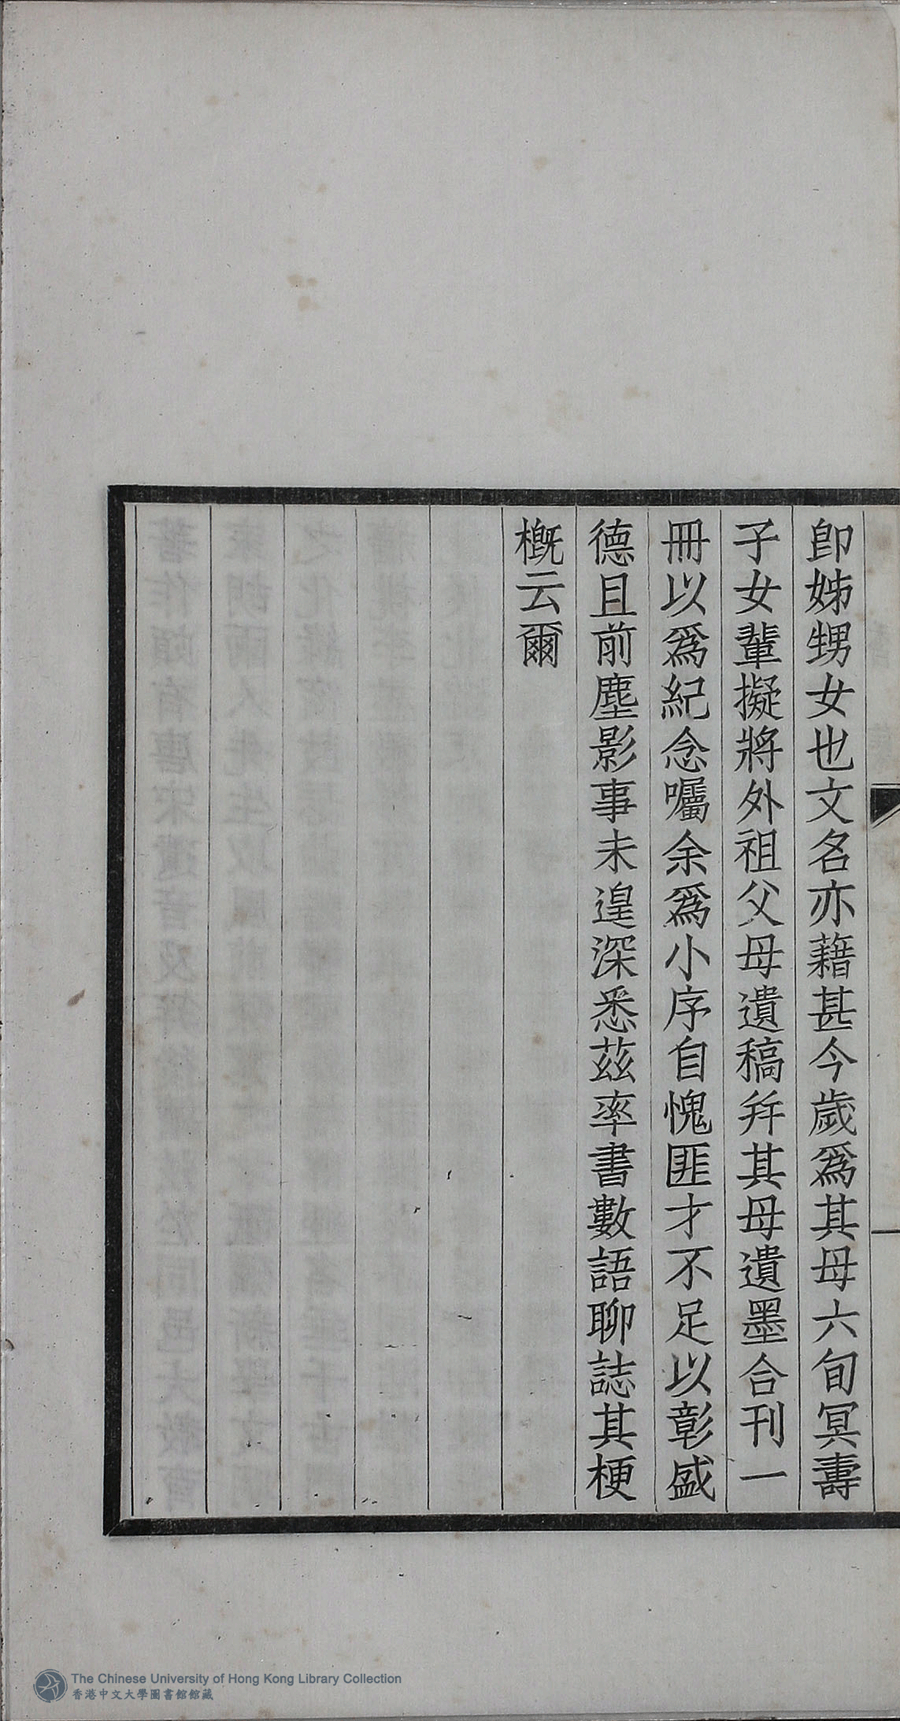 即姊甥女也文名亦藉甚今歲爲其母六旬冥壽
子女輩擬將外祖父母遺稿幷其母遺墨合刊一
冊以爲紀念囑余爲小序自愧匪才不足以彰盛
德且前塵影事未遑深悉茲率書數語聊誌其梗
概云爾
The Chinese University of Hong Kong Library Collection
香港中文大學圖書館館藏